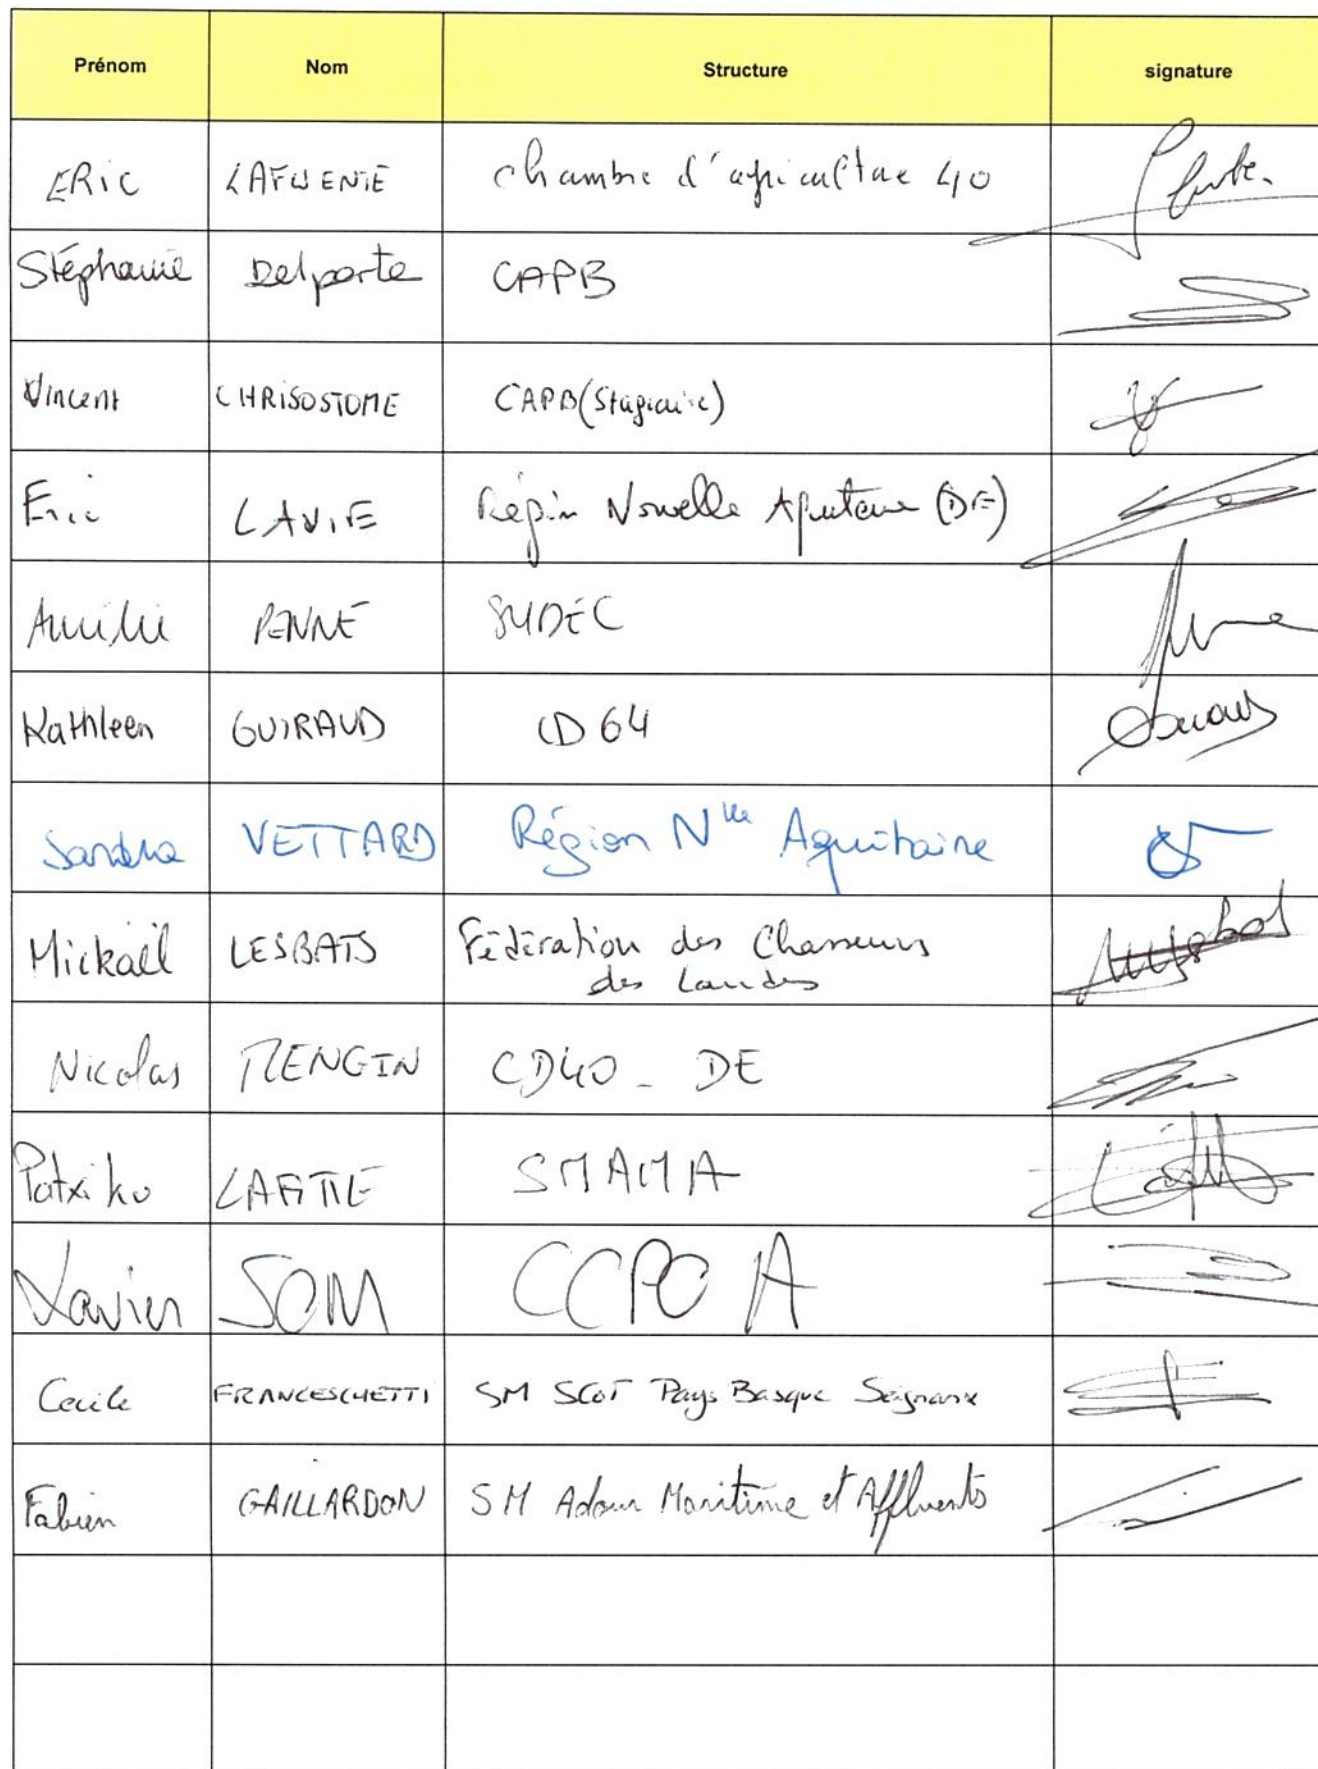 Prénom Nom Structure signature
ERic LAFUENTE chambre d'agriculture 40
Stéphanie Delporte CAPB
Vincent CHRISOSTOME CAPB (Stagiaire)
Eric LAVIE Région Nouvelle Aquitaine (DE)
Amélie PENNE SYDEC
Kathleen GUIRAUD CD 64
Sandra VETTARD Région Nlle Aquitaine
Mickaël LESBATS Fédération des Chasseurs
des Landes
Nicolas MENGIN CD40 - DE
Patxiku LAFITTE SMAMA
Xavier SOM CCPOA
Cecile FRANCESCHETTI SM SCOT Pays Basque Seignanx
Fabien GAILLARDON SM Adour Maritime et Affluents